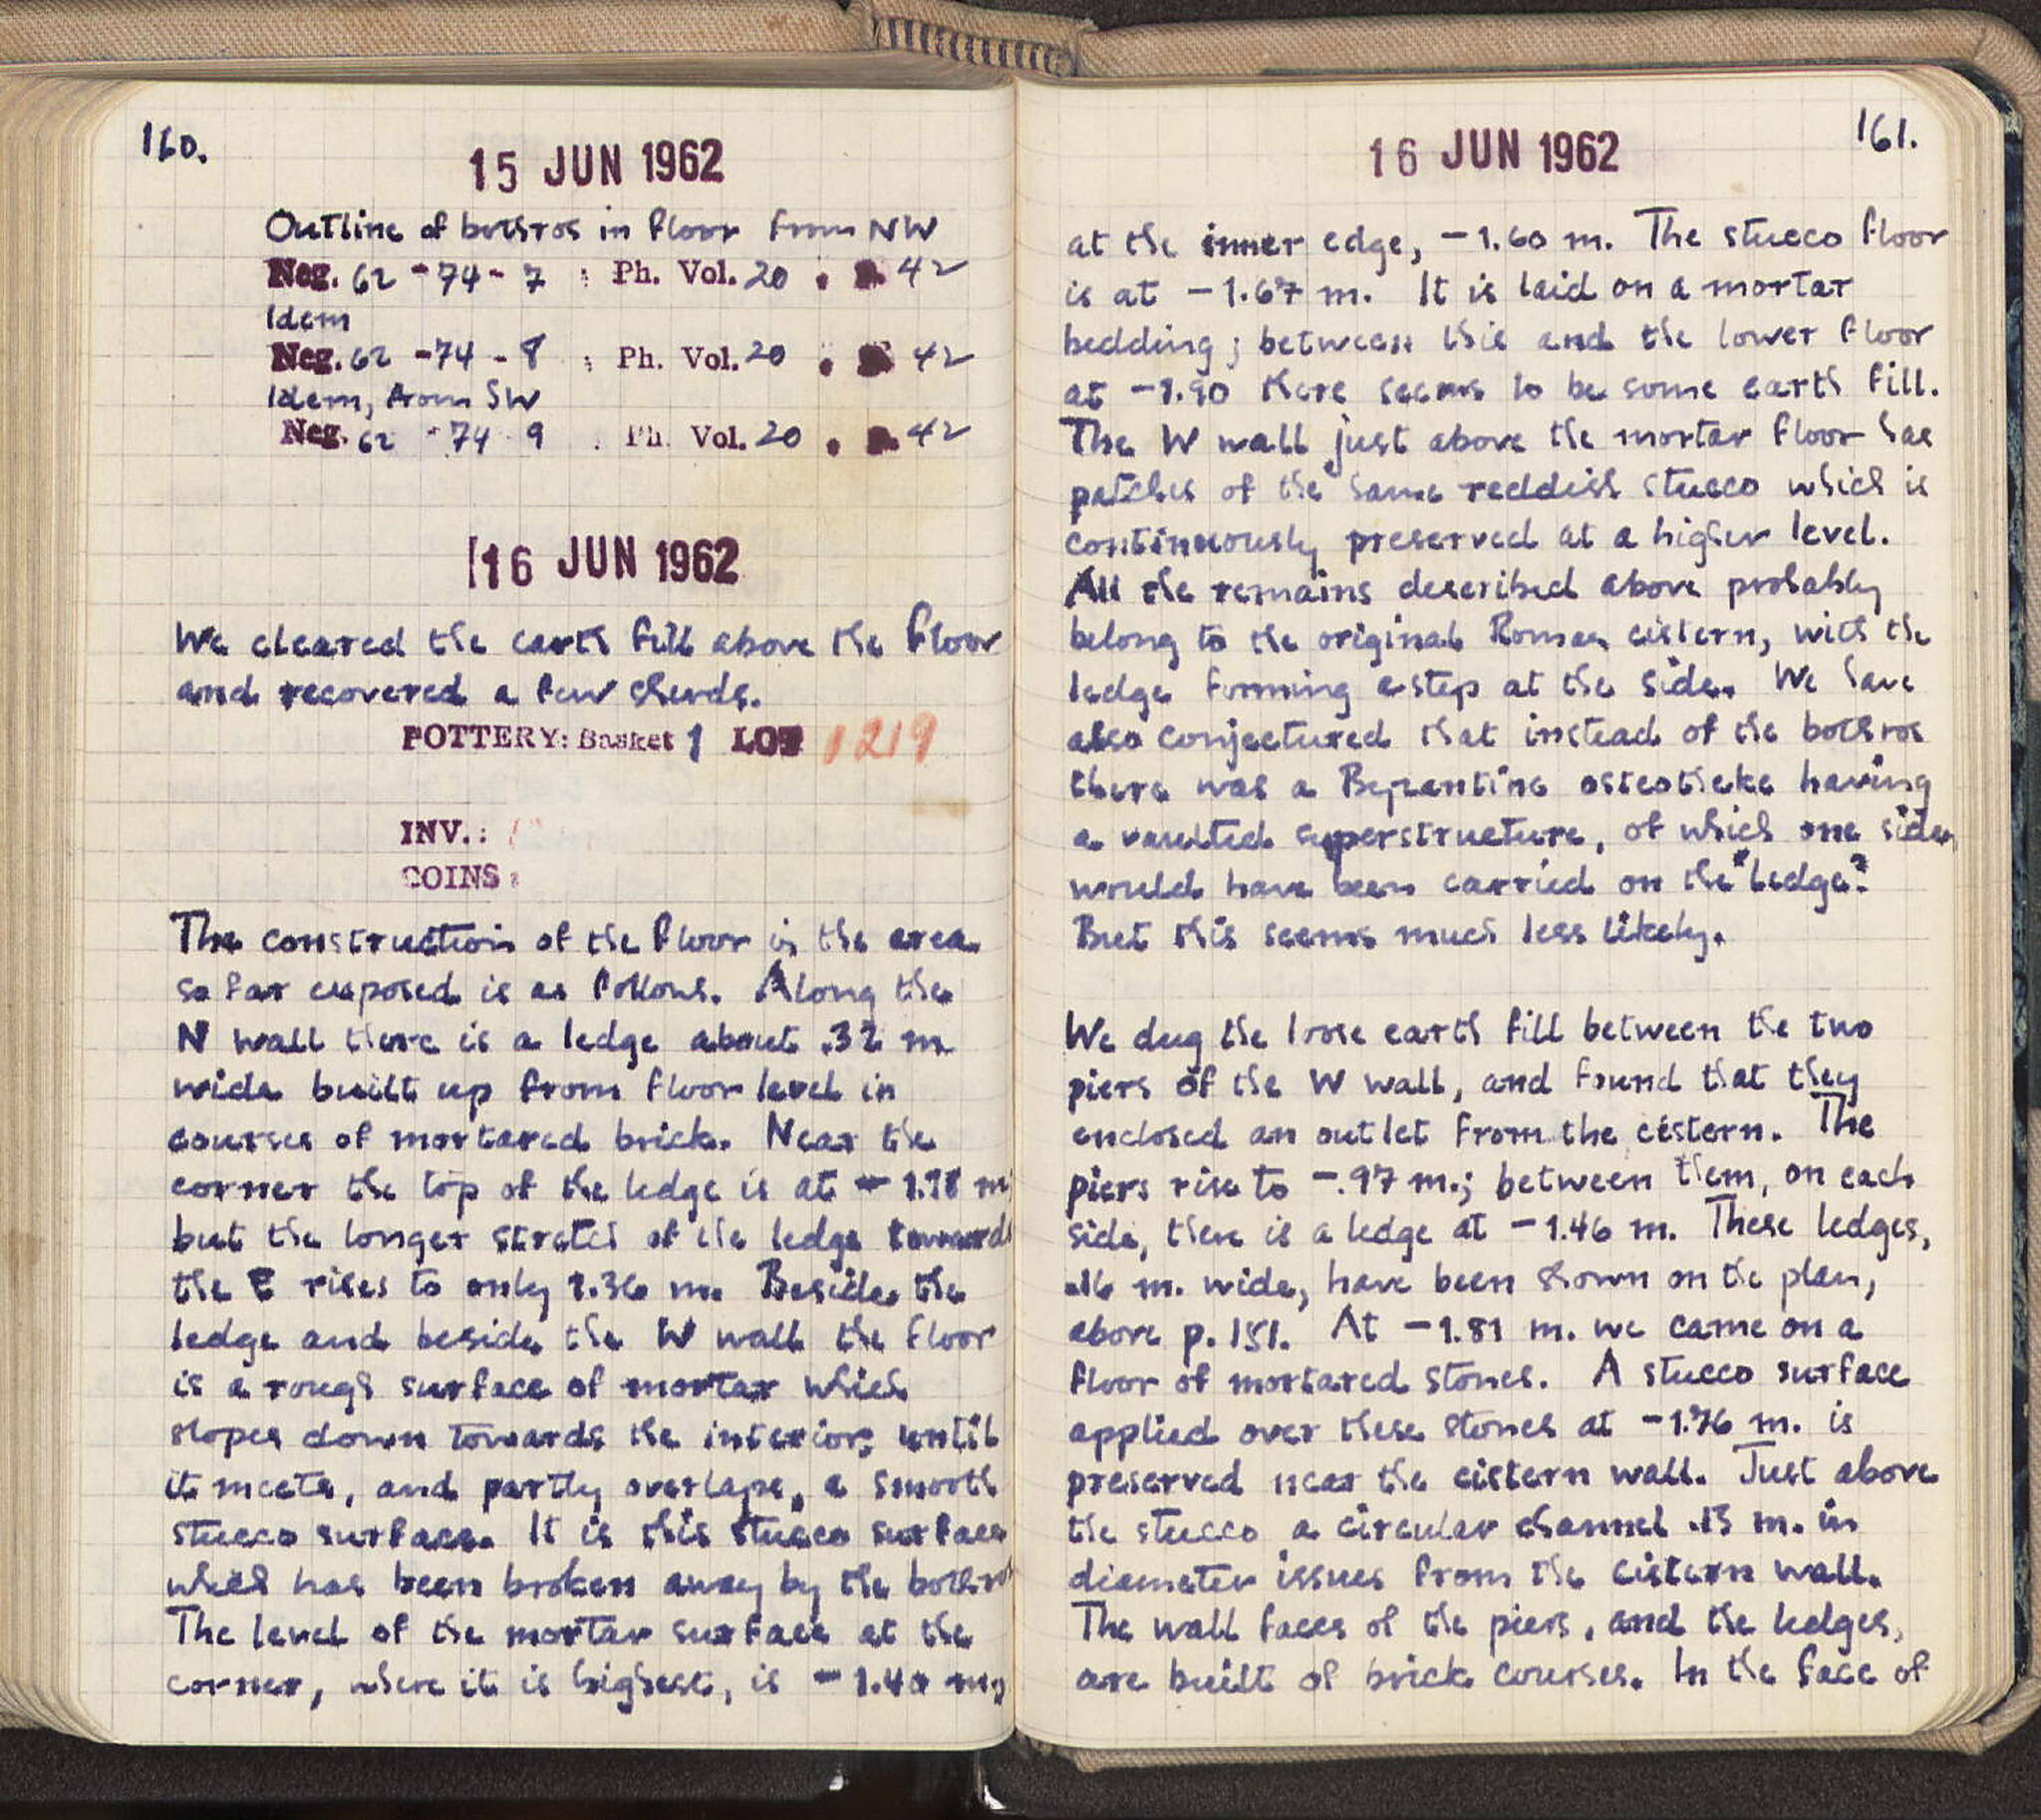 160.
15 JUN 1962
Outline of bothros in floor from NW
Neg. 62 - 74 - 7 : Ph. Vol. 20 . 42
Idem
Neg. 62 - 74 - 8 : Ph. Vol. 20 . 42
Idem, from SW
Neg. 62 - 74 9 . Ph. Vol. 20 . 42
16 JUN 1962
We cleared the earth fill above the floor
and recovered a few sherds.
POTTERY: Basket 1 LOT 1219
INV.:
COINS:
The construction of the floor in the area
so far exposed is as follows. Along the
N wall there is a ledge about .32 m
wide built up from floor level in
courses of mortared brick. Near the
corner the top of the ledge is at - m
but the longer stretch of the ledge towards
the E rises to only 1.36 m. Beside the
ledge and beside the W wall the floor
is a rough surface of mortar which
slopes down towards the interior, until
it meets, and partly overlaps, a smooth
stucco surface. It is this stucco surface
which has been broken away by the bothros
The level of the mortar surface at the
corner, where it is highest, is - 1.40 m.,
161.
16 JUN 1962
at the inner edge, -1.60 m. The stucco floor
is at -1.67 m. It is laid on a mortar
bedding; between this and the lower floor
at -1.90 there seems to be some earth fill.
The W wall just above the mortar floor has
patches of the same reddish stucco which is
continuously preserved at a higher level.
All the remains described above probably
belong to the original Roman cistern, with the
ledge forming a step at the side. We have
also conjectured that instead of the bothros
there was a Byzantine osteotheke having
a vaulted superstructure, of which one side
would have been carried on the "ledge".
But this seems much less likely.
We dug the loose earth fill between the two
piers of the W wall, and found that they
enclosed an outlet from the cistern. The
piers rise to -.97 m.; between them, on each
side, there is a ledge at -1.46 m. These ledges,
.16 m. wide, have been shown on the plan,
above p. 151. At -1.81 m. we came on a
floor of mortared stones. A stucco surface
applied over these stones at -1.76 m. is
preserved near the cistern wall. Just above
the stucco a circular channel .13 m. in
diameter issues from the cistern wall.
The wall faces of the piers, and the ledges,
are built of brick courses. In the face of